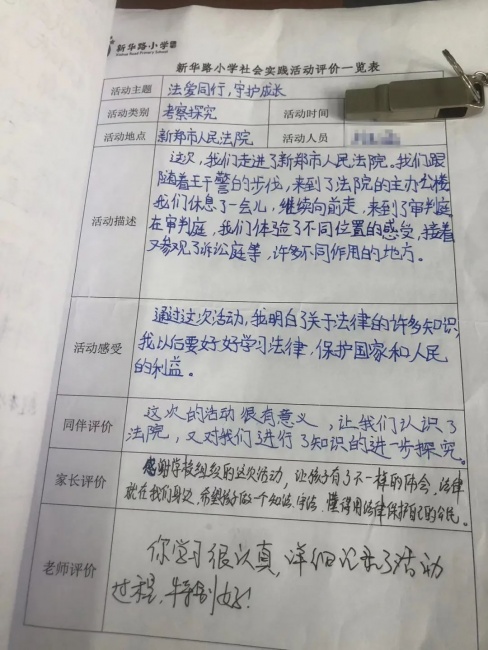 新华路小学
新华路小学社会实践活动评价一览表
活动主题 法爱同行,守护成长
活动类别 考察探究 活动时间
活动地点 新郑市人民法院 活动人员
活动描述
这次,我们走进了新郑市人民法院。我们跟
随着王干警的步伐,来到了法院的主办公楼
我们休息了一会儿,继续向前走,来到了审判庭
在审判庭,我们体验了不同位置的感受,接着
又参观了诉讼庭等,许多不同作用的地方。
活动感受
通过这次活动,我明白了关于法律的许多知识,
我以后要好好学习法律,保护国家和人民
的利益。
同伴评价
这次的活动很有意义,让我们认识了
法院,又对我们进行了知识的进一步探究。
家长评价
感谢学校组织的这次活动,让孩子有了不一样的体会,法律
就在我们身边,希望孩子做一个知法、守法、懂得用法律保护自己的公民。
老师评价
你学习很认真,详细记录了活动
过程,特别好!